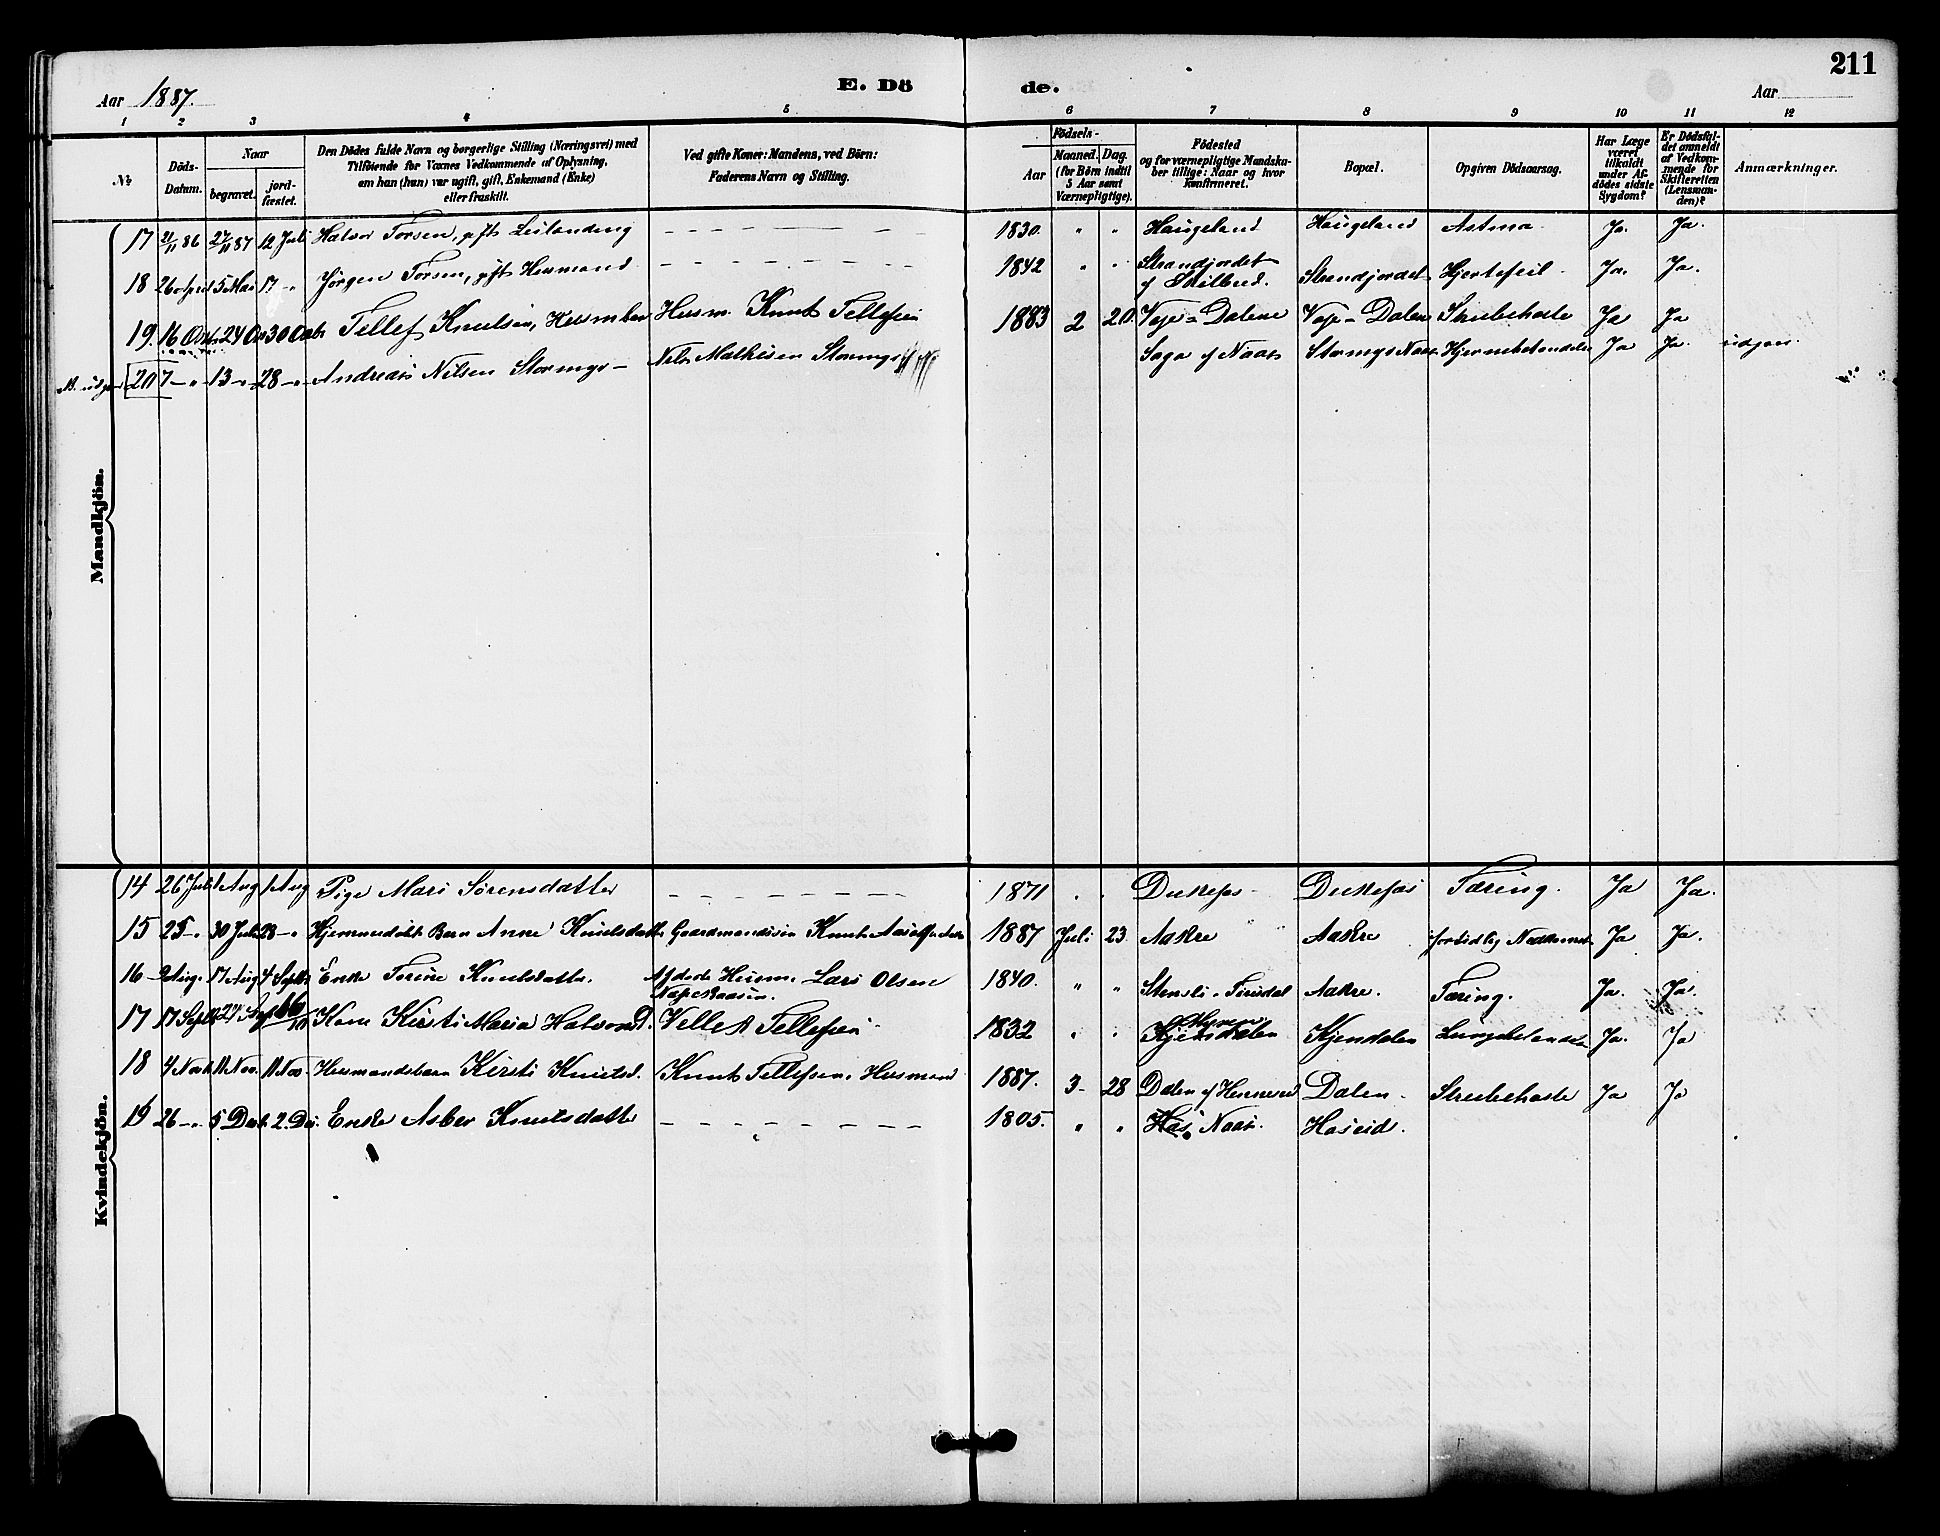 211
Aar 1887.
E. Dö
de.
Aar
1 2 3 4 5 6 7 8 9 10 11 12
№
Döds-Datum.
Naar
begravet.
jord-fæstet.
Den Dödes fulde Navn og borgerlige Stilling (Næringsvei) med
Tilföiende for Voxnes Vedkommende af Oplysning,
om han (hun) var ugift, gift, Enkemand (Enke)
eller fraskilt.
Ved gifte Koner: Mandens, ved Börn:
Faderens Navn og Stilling.
Födsels-
Aar
Maaned. Dag.
(for Börn indtil
5 Aar samt
Værnepligtige).
Födested
og for værnepligtige Mandska-
ber tillige: Naar og hvor
konfirmeret.
Bopæl.
Opgiven Dödsaarsag.
Har Læge
været
tilkaldt
under Af-
dödes sidste
Sygdom?
Er Dödsfal-
det anmeldt
af Vedkom-
mende for
Skifteretten
(Lensman-
den)?
Anmærkninger.
Mandkjön.
17 21/11 86 27/11 87 12 Juli Halvor Torsen, gift Leilænding — — — 1830. " " Haugeland Haugeland Astma. Ja. Ja.
18 26 April 5 Mai 17 -" Jørgen Torsen, gift Husmand — — — 1842 " " Strandjordet Strandjordet Hjertefeil. Ja. Ja.
19. 16 Oct. 24 Oct 30 Octb Tellef Knutsen, Husm. Knut Tellefsen 1883 2 20. Veje-Dalene Veje-Dalen Strubehoste Ja Ja
20 7 -" 13 -" 28 -" Andreas Nilsen Stormyr- Nils Mathisen Stormyr Saga Naas Ja Ja. udgaar.
Kvindekjön.
14 26 Juli 1 Aug 1 Aug Pige Mari Sørensdatter — — — 1871 " " Tæring. Ja Ja.
15 25 -" 30 Juli 28 -" Hjemmedøbt Barn Anne Knutsdatter Gaardmand Knut 1887 Juli 23 Aakre Aakre fortidlig Nedkomst Ja Ja.
16 2 Aug. 17 Aug 4 Septb Enke Torine Knutsdatter. Afdøde Husm. Lars Olsen 1840. " " Aakre. Tæring. Ja. Ja.
17 17 Septb 27 Sep 16/10 Kone Kirsti Maria Halvorsd. Tellefsen 1832 " " Kjendalen Ja. Ja
18 4 Novb 11 Nov. 11 Nov. Husmandsbarn Kirsti Knutsd. Knut Tellefsen. Husmand 1887. 3- 28 Dalen Dalen. Strubehoste Ja Ja
19 26 -" 5 Decb. 2. De. Enke Asber Knutsdatter — — — 1805. " " Has. Naas. Haseid.